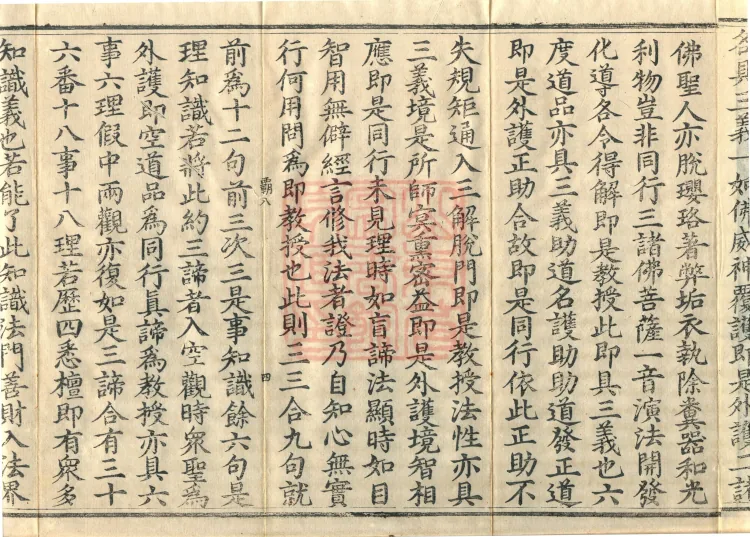 各具三義一如佛威神覆護即是外護二諸
佛聖人亦脫瓔珞著弊垢衣執除糞器和光
利物豈非同行三諸佛菩薩一音演法開發
化導各令得解即是教授此即具三義也六
度道品亦具三義助道名護助助道發正道
即是外護正助合故即是同行依此正助不
失規矩通入三解脫門即是教授法性亦具
三義境是所師冥熏密益即是外護境智相
應即是同行未見理時如盲諦法顯時如目
智用無僻經言修我法者證乃自知心無實
行何用問為即教授也此則三三合九句就
霸八
四
前為十二句前三次三是事知識餘六句是
理知識若將此約三諦者入空觀時眾聖為
外護即空道品為同行真諦為教授亦具六
事六理假中兩觀亦復如是三諦合有三十
六番十八事十八理若歷四悉檀即有眾多
知識義也若能了此知識法門善財入法界